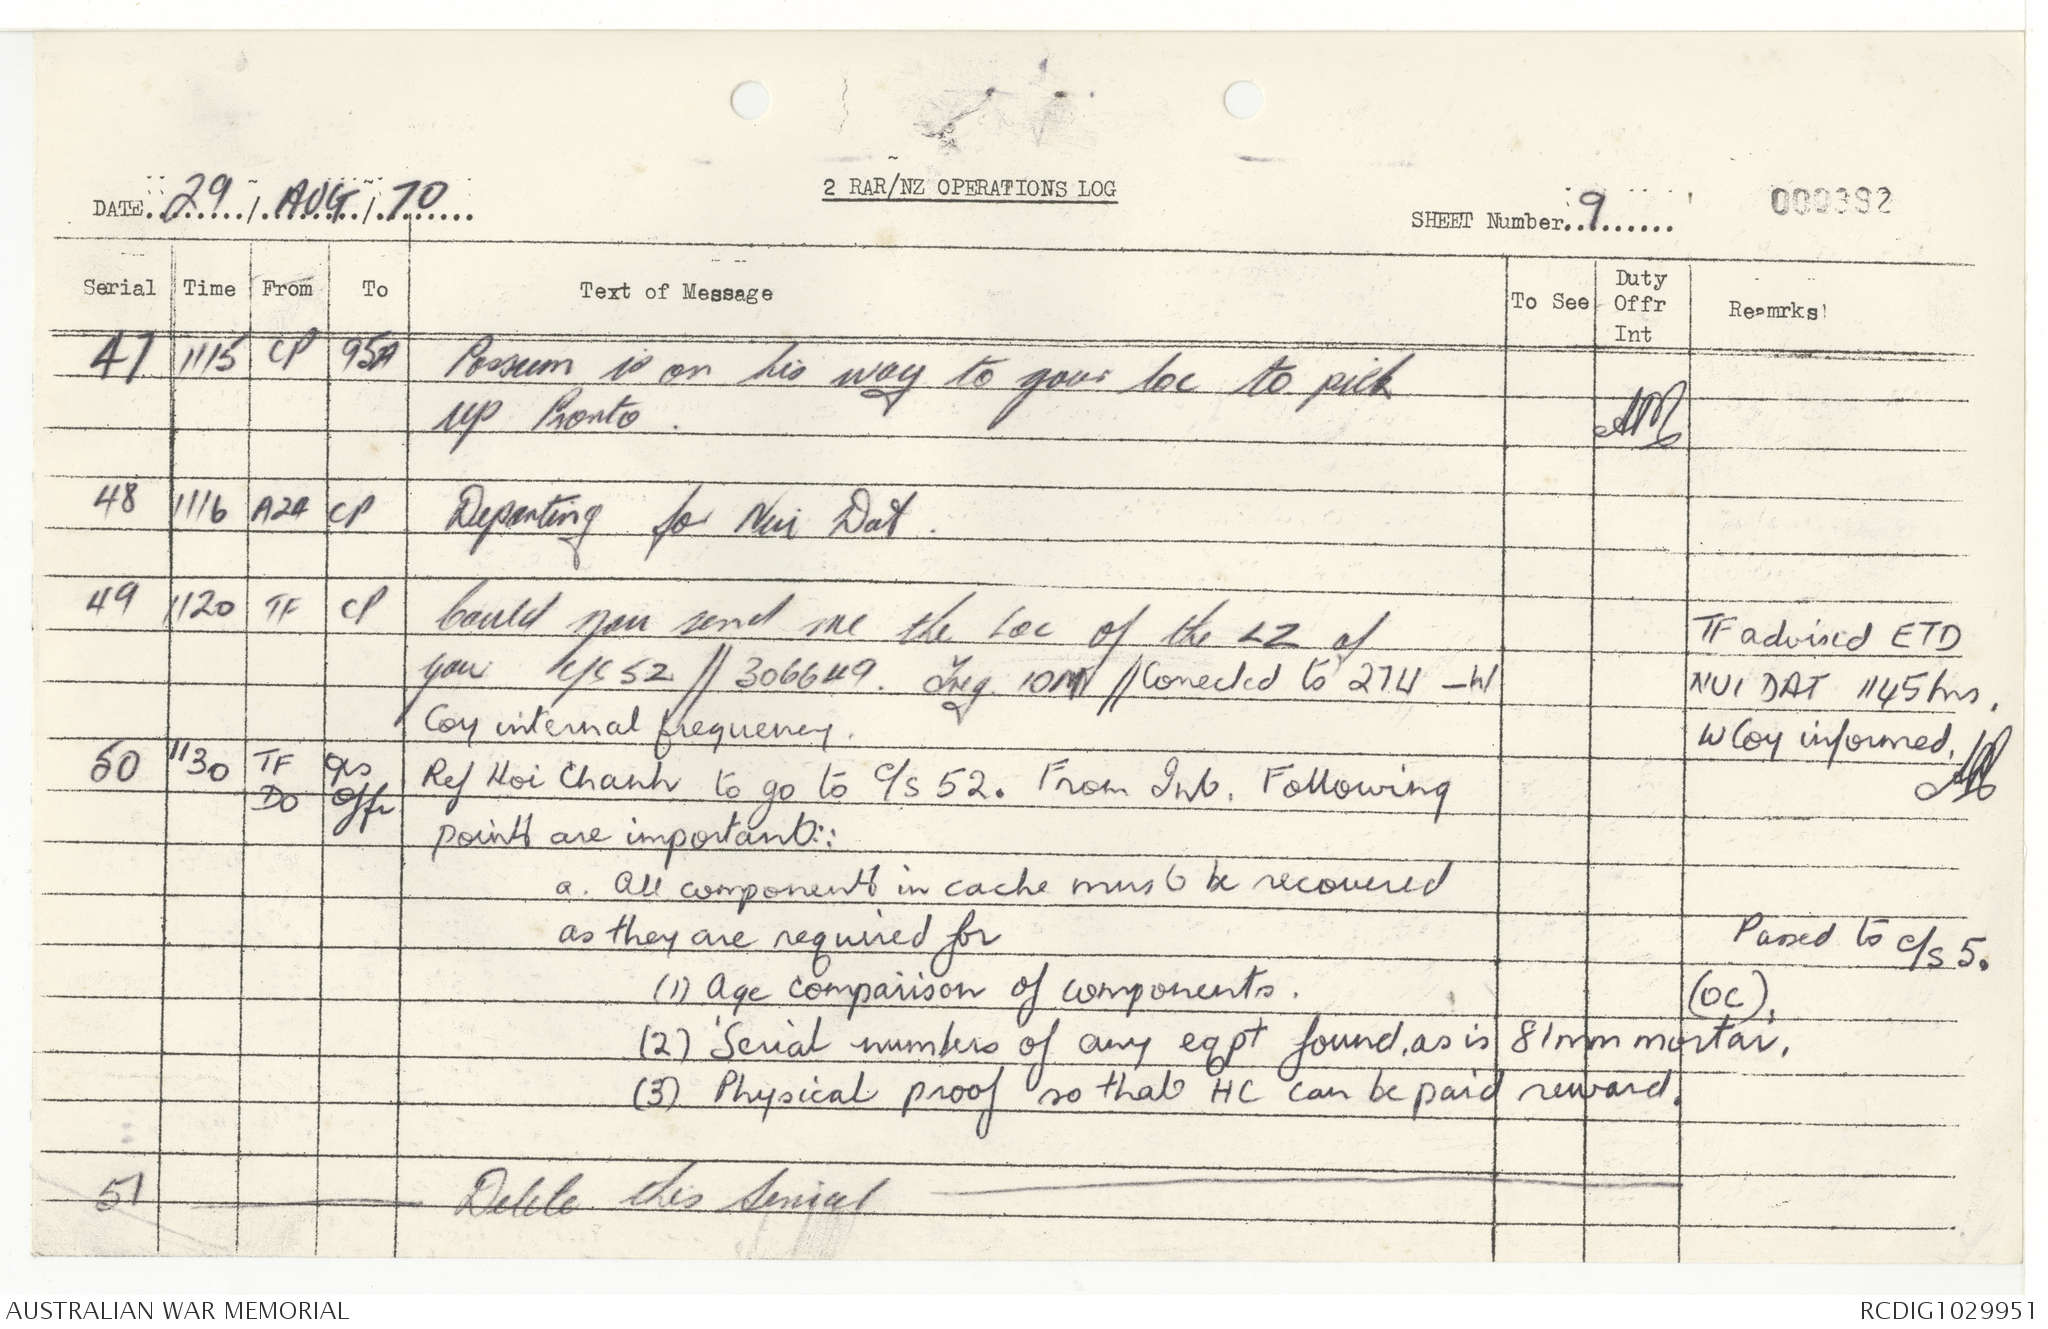 2 RAR/NZ OPERATIONS LOG
DATE 29 / AUG / 70
SHEET Number 9
000392
Serial Time From To Text of Message To See Duty Offr Int Remarks
47 1115 CP 95A Possum is on his way to your loc to pick
up Pronto.
48 1116 A2A CP Departing for Nui Dat.
49 1120 TF CP Could you send me the Loc of the LZ of TF advised ETD
you c/s 52 // 306649. Freq 10M // Corrected to 274 - W NUI DAT 1145 hrs.
Coy internal frequency. W Coy informed.
50 1130 TF Ops Ref Hoi Chanh to go to c/s 52. From Int. Following
DO Offr points are important::
a. All components in cache must be recovered
as they are required for Passed to c/s 5.
(1) Age comparison of components. (OC).
(2) Serial numbers of any eqpt found, as is 81mm mortar.
(3) Physical proof so that HC can be paid reward.
51 Delete this Serial
AUSTRALIAN WAR MEMORIAL RCDIG1029951